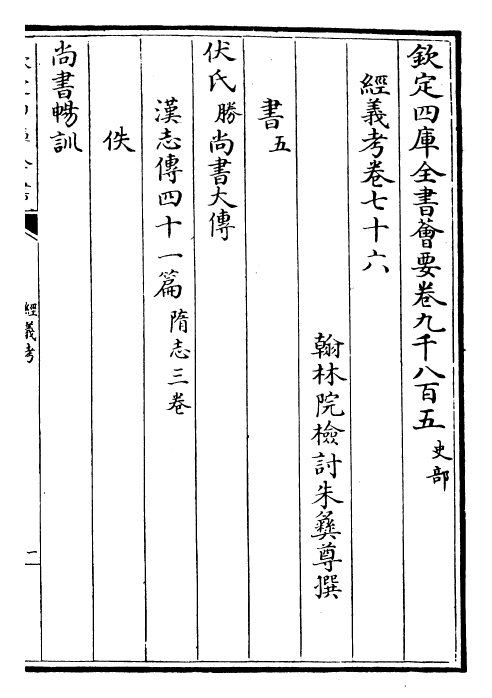 欽定四庫全書薈要卷九千八百五 史部
經義考卷七十六
翰林院檢討朱彝尊撰
書五
伏氏勝尚書大傳
漢志傳四十一篇隋志三卷
佚
尚書暢訓
經義考
一